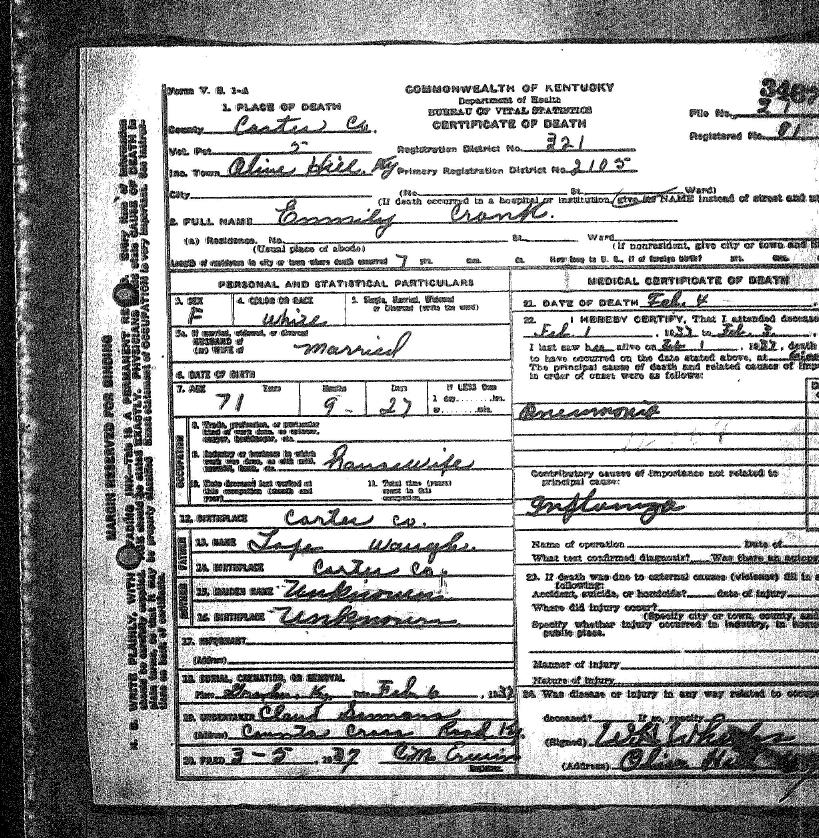 Form V. S. 1-A
COMMONWEALTH OF KENTUCKY
Department of Health
BUREAU OF VITAL STATISTICS
CERTIFICATE OF DEATH
File No.
Registered No. 81
1. PLACE OF DEATH
County Carter Co.
Vot. Pct 5
Registration District No. 321
Inc. Town Olive Hill, Ky
Primary Registration District No. 2105
City
(No. St. Ward)
(If death occurred in a hospital or institution, give its NAME instead of street and
2. FULL NAME Emmily Crank.
(a) Residence. No. St. Ward
(Usual place of abode)
(If nonresident, give city or town and
Length of residence in city or town where death occurred 7 yrs. mos. ds. How long in U. S., if of foreign birth? yrs. mos.
PERSONAL AND STATISTICAL PARTICULARS
3. SEX
F
4. COLOR OR RACE
White
5. Single, Married, Widowed
or Divorced (write the word)
5a. If married, widowed, or divorced
HUSBAND of
(or) WIFE of
Married
6. DATE OF BIRTH
7. AGE Years Months Days If LESS than
71 9 - 27
1 day hrs.
or min.
OCCUPATION
8. Trade, profession, or particular
kind of work done, as spinner,
sawyer, bookkeeper, etc.
9. Industry or business in which
work was done, as silk mill,
sawmill, bank, etc.
housewife
10. Date deceased last worked at
this occupation (month and
year)
11. Total time (years)
spent in this
occupation
12. BIRTHPLACE Carter Co.
FATHER
13. NAME Waugh.
14. BIRTHPLACE Carter Co.
MOTHER
15. MAIDEN NAME Unknown
16. BIRTHPLACE Unknown
17. INFORMANT
(Address)
18. BURIAL, CREMATION, OR REMOVAL
Place Ky. Date Feb 6, 1937
19. UNDERTAKER Claud
(Address) Counts Cross Road Ky.
20. FILED 3-5, 1937 C.M.
Registrar.
MEDICAL CERTIFICATE OF DEATH
21. DATE OF DEATH Feb. 4
22. I HEREBY CERTIFY, That I attended deceased
Feb 1, 1937 to Feb. 3,
I last saw her alive on Feb 1, 1937, death
to have occurred on the date stated above, at
The principal cause of death and related causes of
in order of onset were as follows:
Pneumonia
Contributory causes of importance not related to
principal cause:
Influenza
Name of operation Date of
What test confirmed diagnosis? Was there an autopsy
23. If death was due to external causes (violence) fill in
following:
Accident, suicide, or homicide? date of injury
Where did injury occur?
(Specify city or town, county, and
Specify whether injury occurred in industry, in home
public place.
Manner of injury
Nature of injury
24. Was disease or injury in any way related to
deceased? If so, specify
(Signed)
(Address) Olive Hill
MARGIN RESERVED FOR BINDING